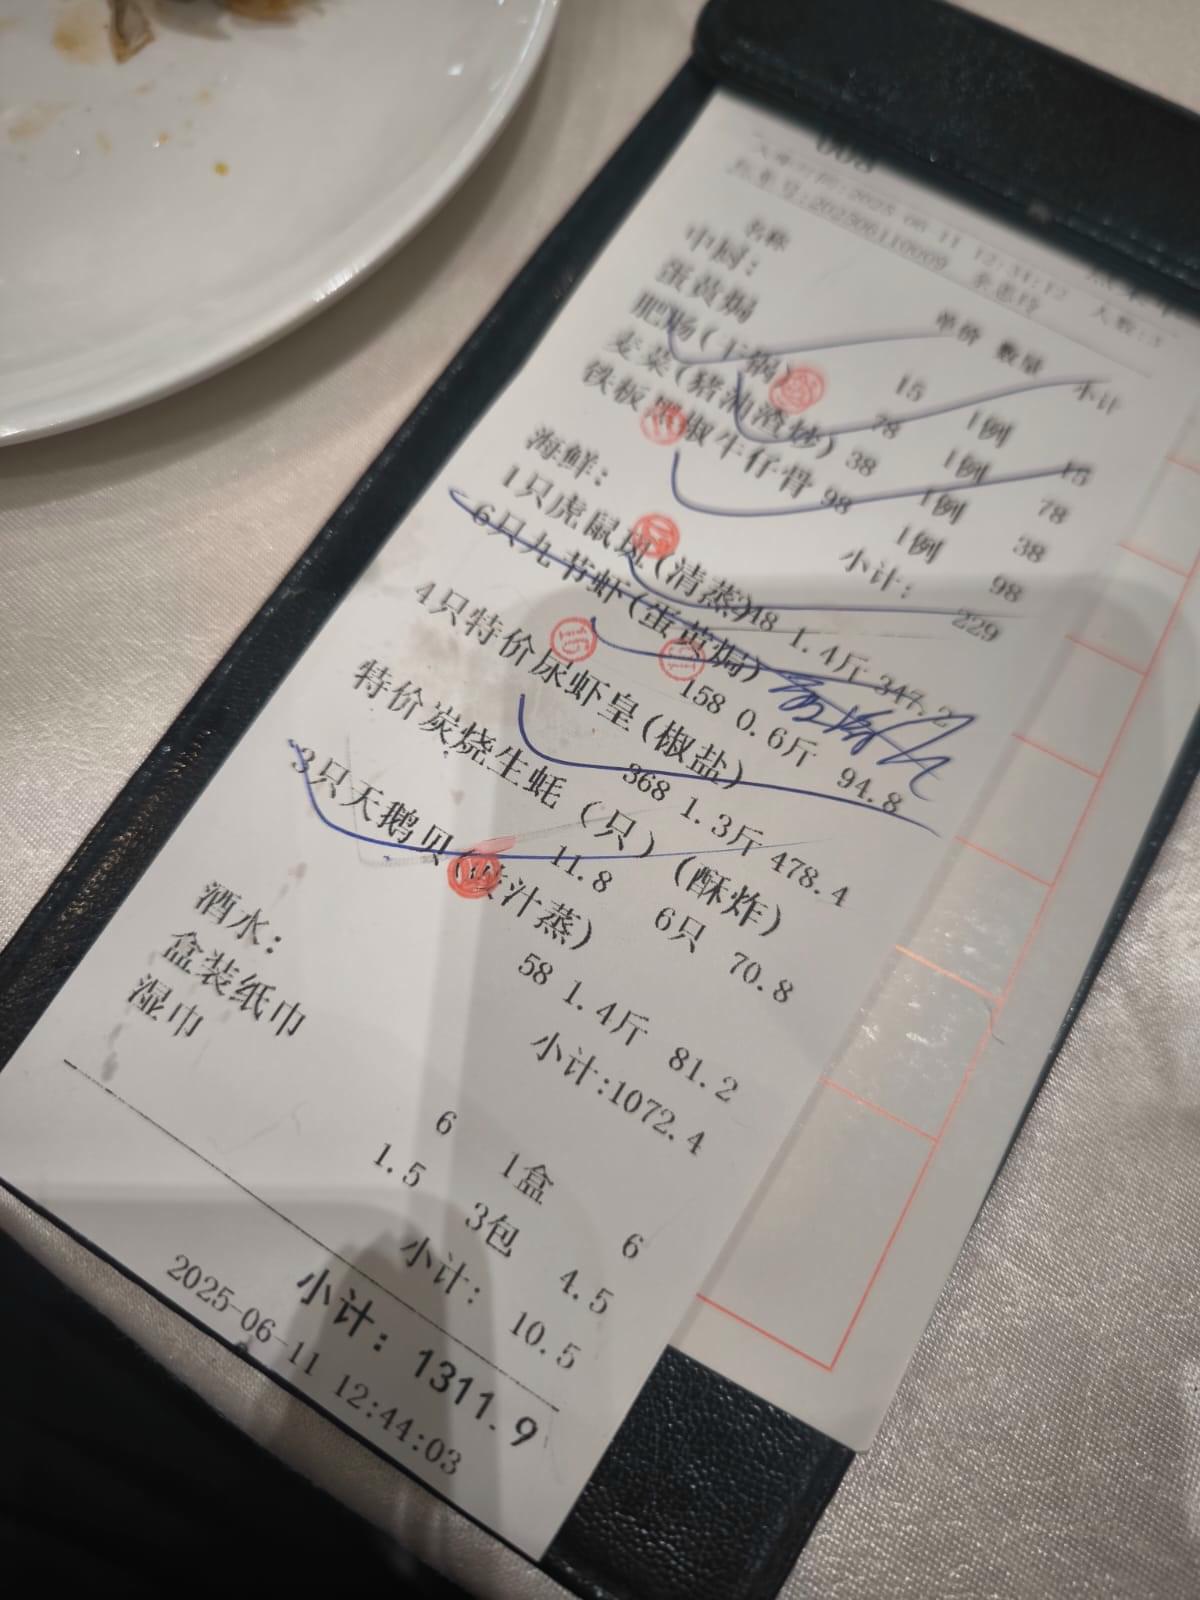 008
2025-06-11 12:31:12 人数:3
202506110009
名称 单价 数量 小计
中厨:
蛋黄焗 15 1例 15
肥肠(干锅) 78 1例 78
麦菜(猪油渣炒) 38 1例 38
铁板黑椒牛仔骨 98 1例 98
小计: 229
海鲜:
1只虎鼠斑(清蒸)
248 1.4斤 347.2
6只九节虾(蛋黄焗)
158 0.6斤 94.8
4只特价尿虾皇(椒盐)
368 1.3斤 478.4
特价炭烧生蚝(只)(酥炸)
11.8 6只 70.8
3只天鹅贝(豉汁蒸)
58 1.4斤 81.2
小计:1072.4
酒水:
盒装纸巾 6 1盒 6
湿巾 1.5 3包 4.5
小计: 10.5
小计: 1311.9
2025-06-11 12:44:03